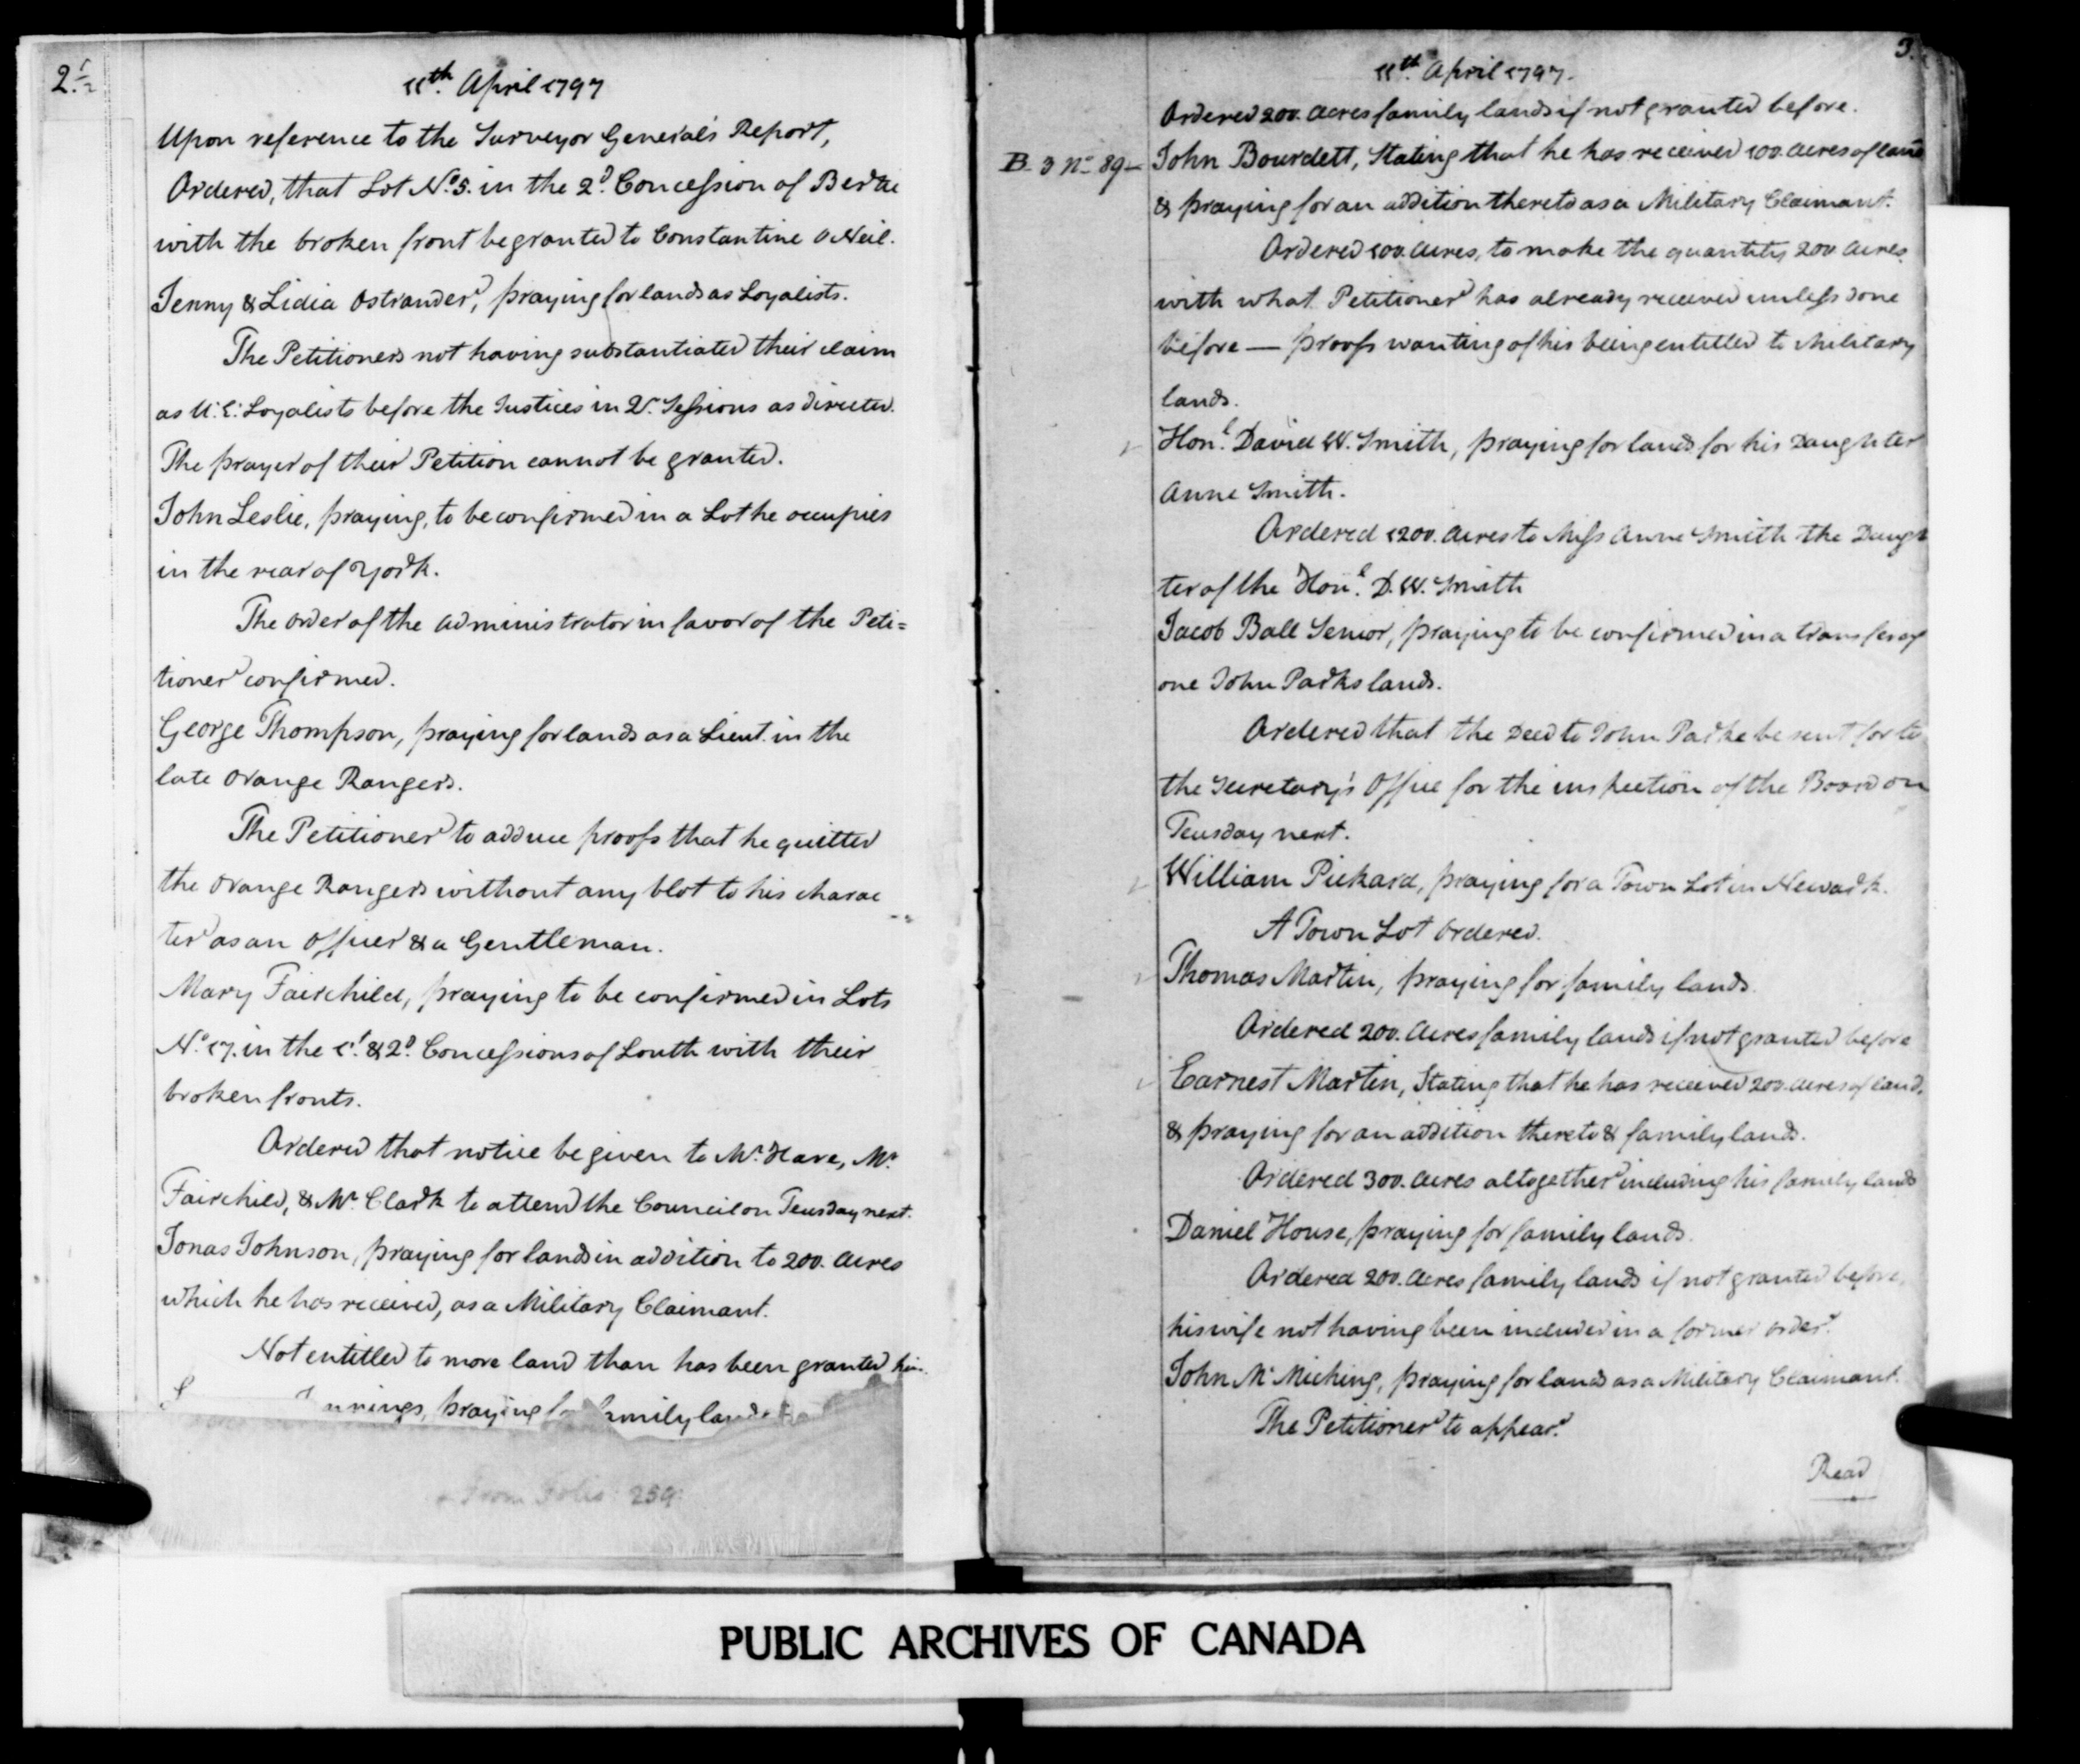 2 1/2
11th. April 1797
Upon reference to the Surveyor General's Report,
Ordered, that Lot No. 5. in the 2d. Concession of Bertie
with the broken front be granted to Constantine O Neil.
Jenny & Lidia Ostrander, praying for lands as Loyalists.
The Petitioners not having substantiated their claim
as U. E. Loyalists before the Justices in Qr. Sessions as directed.
The prayer of their Petition cannot be granted.
John Leslie, praying, to be confirmed in a Lot he occupies
in the rear of York.
The order of the Administrator in favor of the Peti=
tioner confirmed.
George Thompson, praying for lands as a Lieut. in the
late Orange Rangers.
The Petitioner to adduce proofs that he quitted
the Orange Rangers without any blot to his charac
ter as an Officer & a Gentleman.
Mary Fairchild, praying to be confirmed in Lots
No. 17. in the 1st. & 2d. Concessions of Louth with their
broken fronts.
Ordered that notice be given to Mr. Hare, Mr.
Fairchild, & Mr. Clark to attend the Council on Teusday next.
Jonas Johnson, praying for lands in addition to 200. Acres
which he has received, as a Military Claimant.
Not entitled to more land than has been granted him.
nnings, praying for family lands
From Folio 259
3.
11th. April 1797.
Ordered 200. Acres family lands if not granted before.
B. 3 No. 89 - John Bourdett, Stating that he has received 100. Acres of land
& praying for an addition thereto as a Military Claimant.
Ordered 100. Acres, to make the quantity 200 Acres
with what Petitioner has already received unless done
before — proofs wanting of his being entitled to Military
lands.
Honl. David W. Smith, praying for lands for his Daughter
Anne Smith.
Ordered 1200. Acres to Miss Anne Smith the Daugh
ter of the Honl. D. W. Smith
Jacob Ball Senior, praying to be confirmed in a transfer of
one John Parks lands.
Ordered that the Deed to John Parke be sent for to
the Secretary's Office for the inspection of the Board on
Teusday next.
William Pickard, praying for a Town Lot in Newark.
A Town Lot Ordered.
Thomas Martin, praying for family lands.
Ordered 200. Acres family lands if not granted before
Earnest Martin, Stating that he has received 200. acres of land.
& praying for an addition thereto & family lands.
Ordered 300. Acres altogether including his family lands
Daniel House, praying for family lands.
Ordered 200. Acres family lands if not granted before,
his wife not having been included in a former order.
John Mc Miching, praying for lands as a Military Claimant.
The Petitioner to appear.
Read
PUBLIC ARCHIVES OF CANADA